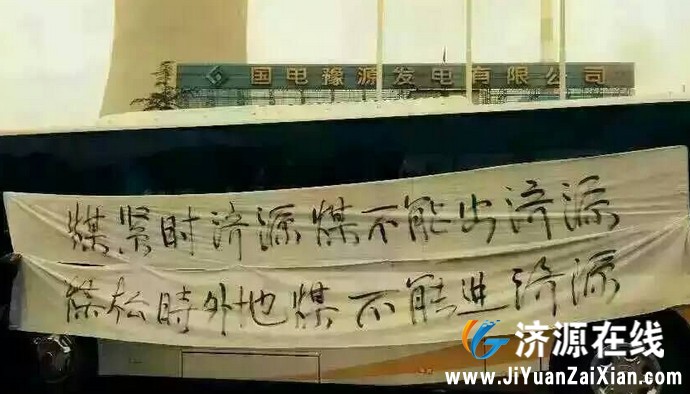 国电豫源发电有限公司
煤紧时济源煤不能出济源
煤松時外地煤不能进济源
济源在线
www.JiYuanZaiXian.com